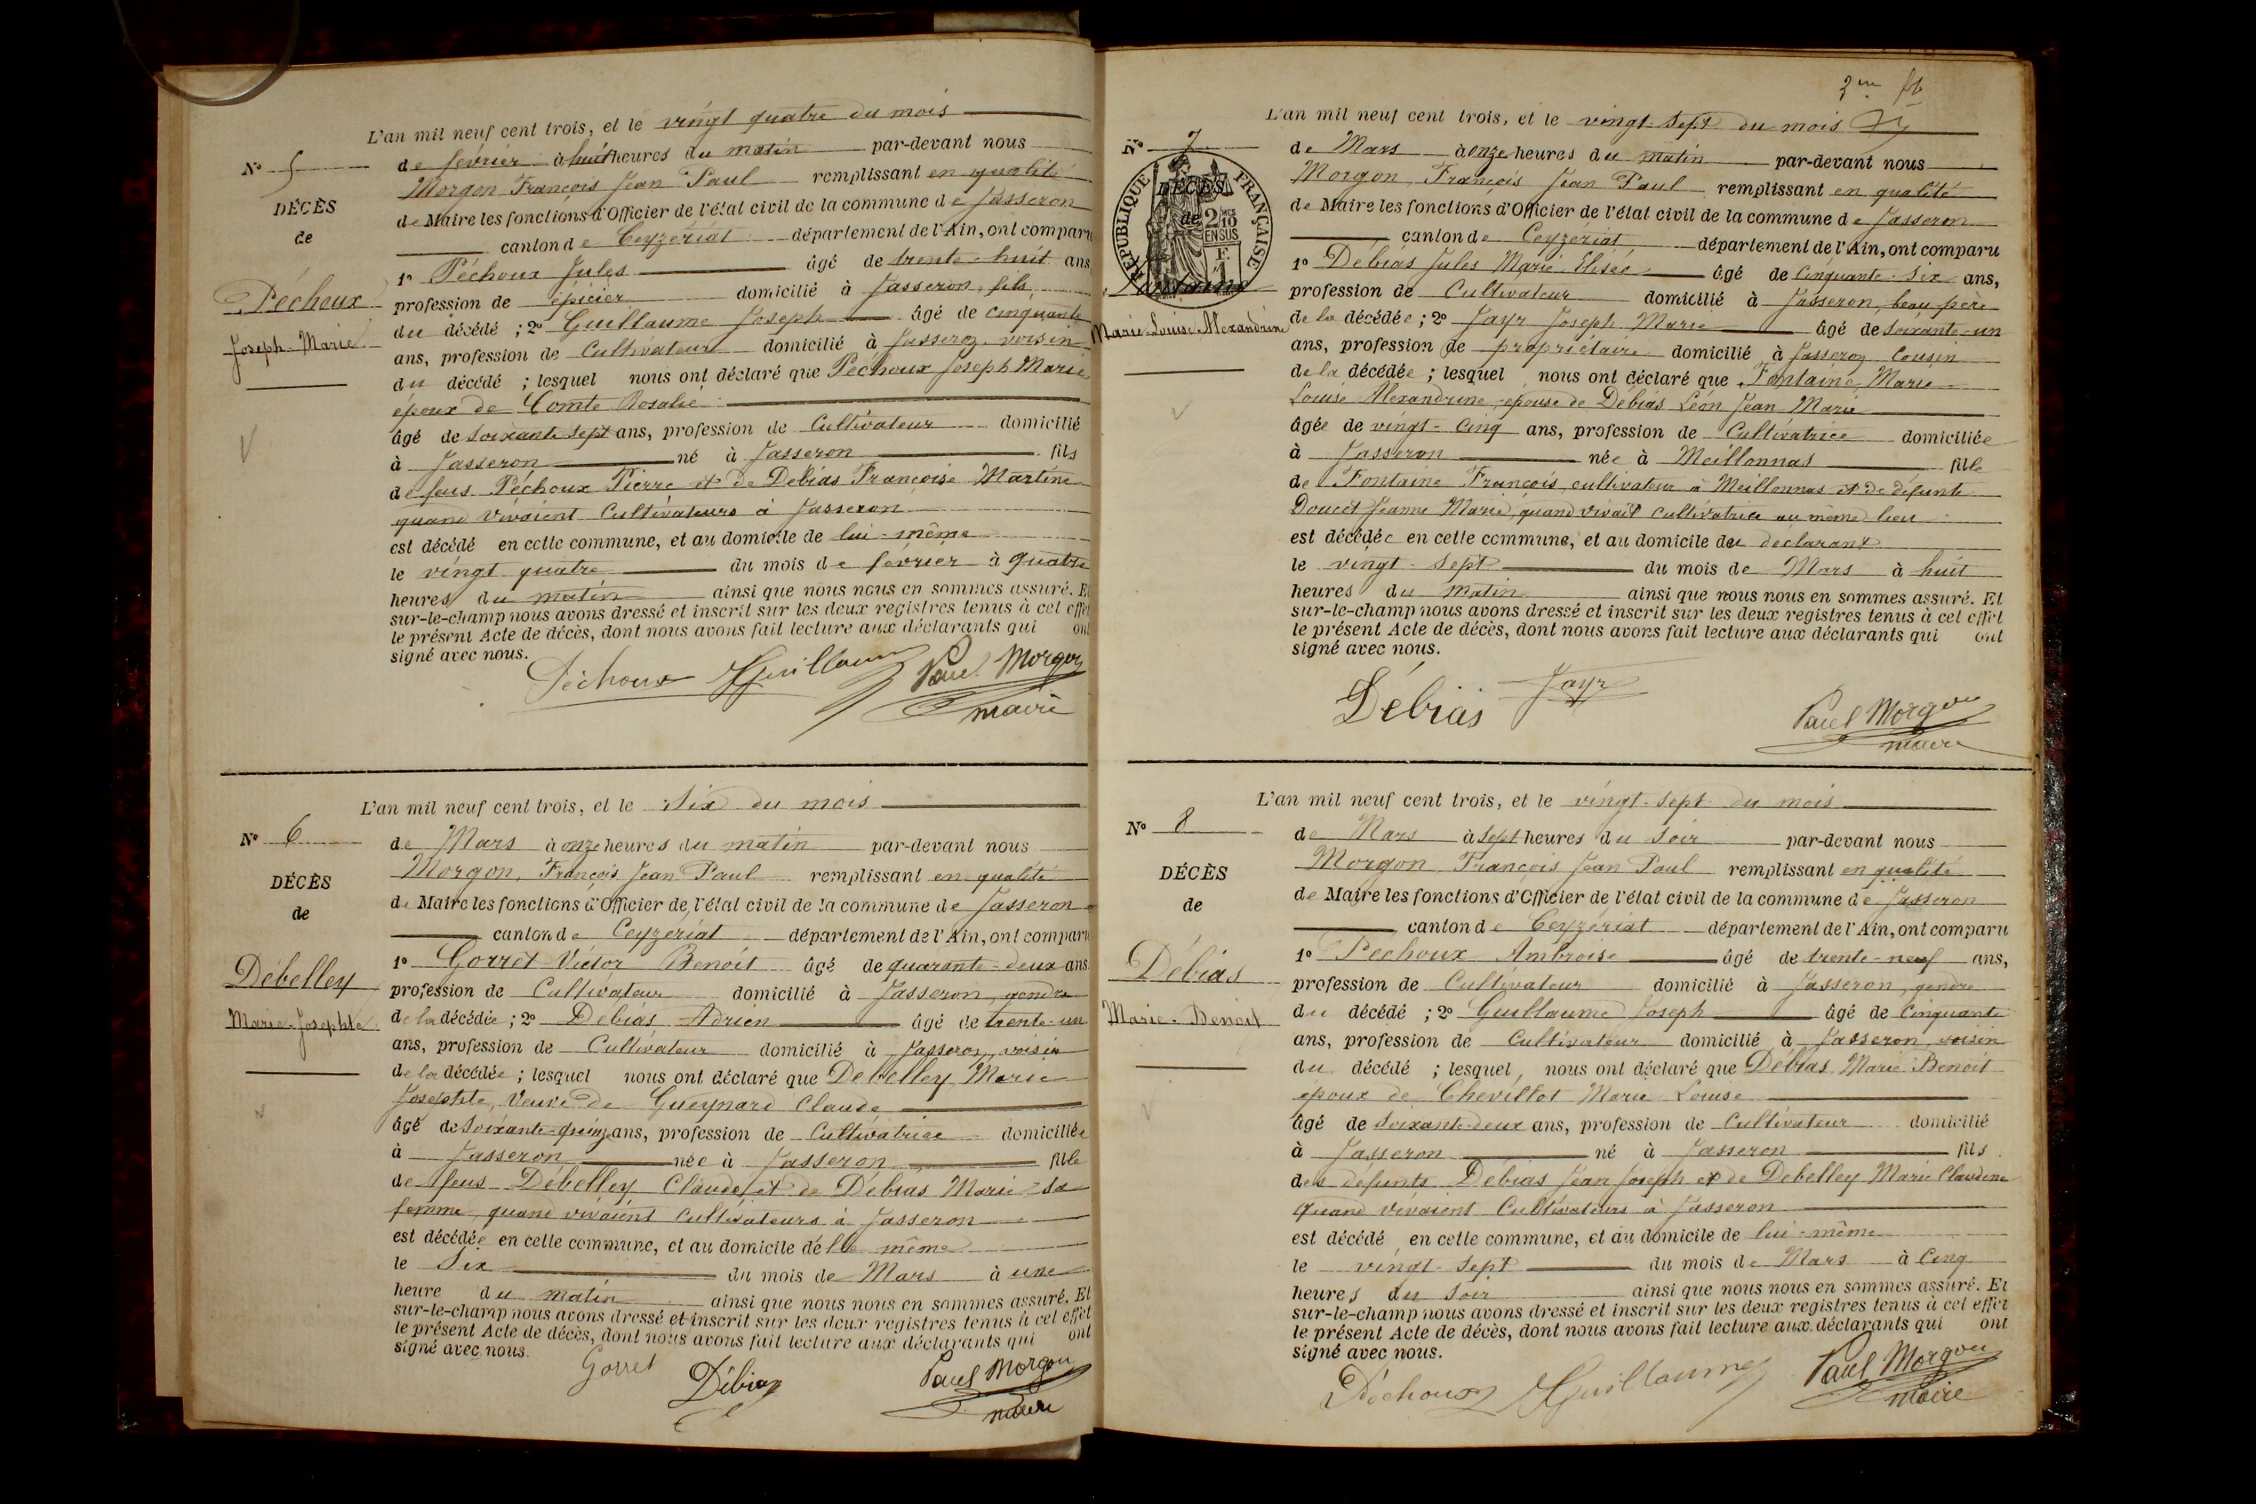 L'an mil neuf cent trois, et le vingt quatre du mois
No 5
de février à huit heures du matin par-devant nous
Morgon François Jean Paul remplissant en qualité
DÉCÈS
de Maire les fonctions d'Officier de l'état civil de la commune de Jasseron
de
canton de Ceyzériat département de l'Ain, ont comparu
1o Péchoux Jules âgé de trente-huit ans
Péchoux
profession de épicier domicilié à Jasseron, fils
du décédé ; 2o Guillaume Joseph âgé de cinquante
Joseph-Marie
ans, profession de Cultivateur domicilié à Jasseron voisin
du décédé ; lesquel nous ont déclaré que Péchoux Joseph Marie
époux de Comte Rosalie
âgé de soixante sept ans, profession de Cultivateur domicilié
à Jasseron né à Jasseron fils
de feus Péchoux Pierre et de Débias Françoise Martine
quand vivaient Cultivateurs à Jasseron
est décédé en cette commune, et au domicile de lui-même
le vingt quatre du mois de février à quatre
heures du matin ainsi que nous nous en sommes assuré. Et
sur-le-champ nous avons dressé et inscrit sur les deux registres tenus à cet effet
le présent Acte de décès, dont nous avons fait lecture aux déclarants qui ont
signé avec nous.
Péchoux Guillaume Paul Morgon
maire
L'an mil neuf cent trois, et le Six du mois
No 6
de Mars à onze heures du matin par-devant nous
Morgon, François Jean Paul remplissant en qualité
DÉCÈS
de Maire les fonctions d'Officier de l'état civil de la commune de Jasseron
de
canton de Ceyzériat département de l'Ain, ont comparu
1o Gorret Victor Benoit âgé de quarante-deux ans
Débelley
profession de Cultivateur domicilié à Jasseron, gendre
Marie-Josephte
de la décédée ; 2o Debias Adrien âgé de trente-un
ans, profession de Cultivateur domicilié à Jasseron, voisin
de la décédée ; lesquel nous ont déclaré que Debelley Marie
Josephte, Veuve de Gueynard Claude
âgé de soixante-quinze ans, profession de Cultivatrice domiciliée
à Jasseron née à Jasseron fille
de feus Débelley Claude et de Débias Marie sa
femme, quand vivaient cultivateurs à Jasseron
est décédée en cette commune, et au domicile d'elle même
le Six du mois de Mars à une
heure du matin ainsi que nous nous en sommes assuré. Et
sur-le-champ nous avons dressé et inscrit sur les deux registres tenus à cet effet
le présent Acte de décès, dont nous avons fait lecture aux déclarants qui ont
signé avec nous.
Gorret Débias Paul Morgon
maire
L'an mil neuf cent trois, et le vingt-Sept du mois
No 7
de Mars à onze heures du matin par-devant nous
Morgon, François Jean Paul remplissant en qualité
DÉCÈS
de
RÉPUBLIQUE FRANÇAISE
2/10 EN SUS
F. 1
de Maire les fonctions d'Officier de l'état civil de la commune de Jasseron
canton de Ceyzériat département de l'Ain, ont comparu
1o Débias Jules Marie Elisée âgé de Cinquante-Six ans,
profession de Cultivateur domicilié à Jasseron, beau père
de la décédée ; 2o Jayr Joseph Marie âgé de soixante-un
Marie-Louise-Alexandrine
ans, profession de propriétaire domicilié à Jasseron cousin
de la décédée ; lesquel nous ont déclaré que Fontaine Marie
Louise Alexandrine, épouse de Débias Léon Jean Marie
âgée de vingt-cinq ans, profession de Cultivatrice domiciliée
à Jasseron née à Meillonnas fille
de Fontaine François, cultivateur à Meillonnas et de défunte
Doucet Jeanne Marie, quand vivait cultivatrice au même lieu
est décédée en cette commune, et au domicile du déclarant
le vingt-Sept du mois de Mars à huit
heures du matin ainsi que nous nous en sommes assuré. Et
sur-le-champ nous avons dressé et inscrit sur les deux registres tenus à cet effet
le présent Acte de décès, dont nous avons fait lecture aux déclarants qui ont
signé avec nous.
Débias Jayr Paul Morgon
maire
L'an mil neuf cent trois, et le vingt-Sept du mois
No 8
de Mars à sept heures du Soir par-devant nous
Morgon François Jean Paul remplissant en qualité
DÉCÈS
de Maire les fonctions d'Officier de l'état civil de la commune de Jasseron
de
canton de Ceyzériat département de l'Ain, ont comparu
1o Pechoux Ambroise âgé de trente-neuf ans,
Débias
profession de Cultivateur domicilié à Jasseron, gendre
Marie-Benoit
du décédé ; 2o Guillaume Joseph âgé de Cinquante
ans, profession de Cultivateur domicilié à Jasseron, voisin
du décédé ; lesquel, nous ont déclaré que Débias Marie-Benoit
époux de Chevillot Marie Louise
âgé de soixante-deux ans, profession de Cultivateur domicilié
à Jasseron né à Jasseron fils
des défunts Débias Jean Joseph et de Debelley Marie Claudine
quand vivaient Cultivateurs à Jasseron
est décédé en cette commune, et au domicile de lui-même
le vingt-Sept du mois de Mars à Cinq
heures du Soir ainsi que nous nous en sommes assuré. Et
sur-le-champ nous avons dressé et inscrit sur les deux registres tenus à cet effet
le présent Acte de décès, dont nous avons fait lecture aux déclarants qui ont
signé avec nous.
Péchoux Guillaume Paul Morgon
maire